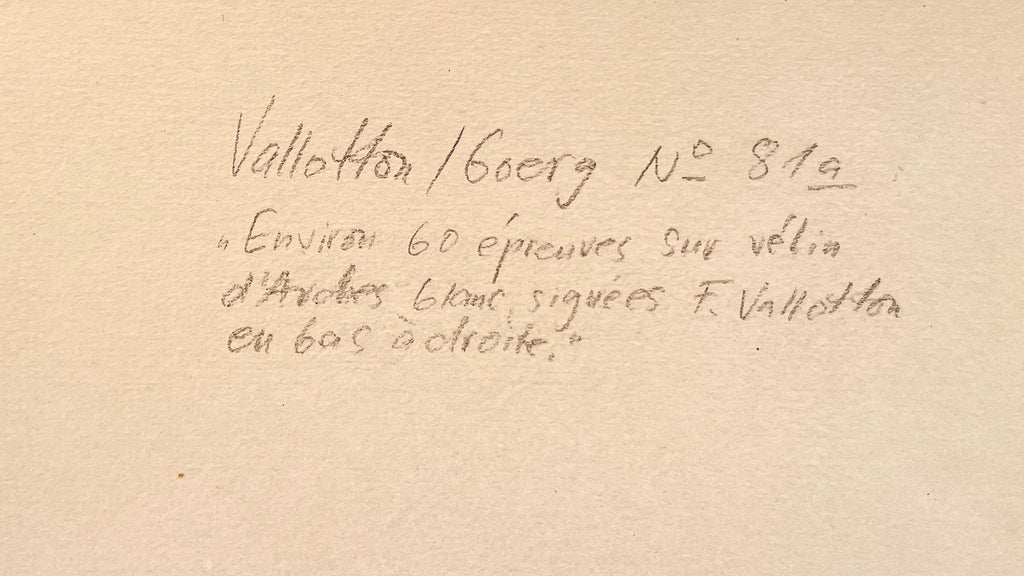 Vallotton / Goerg Nº 81a
„Environ 60 épreuves sur vélin
d'Arches blanc, signées F. Vallotton
en bas à droite."